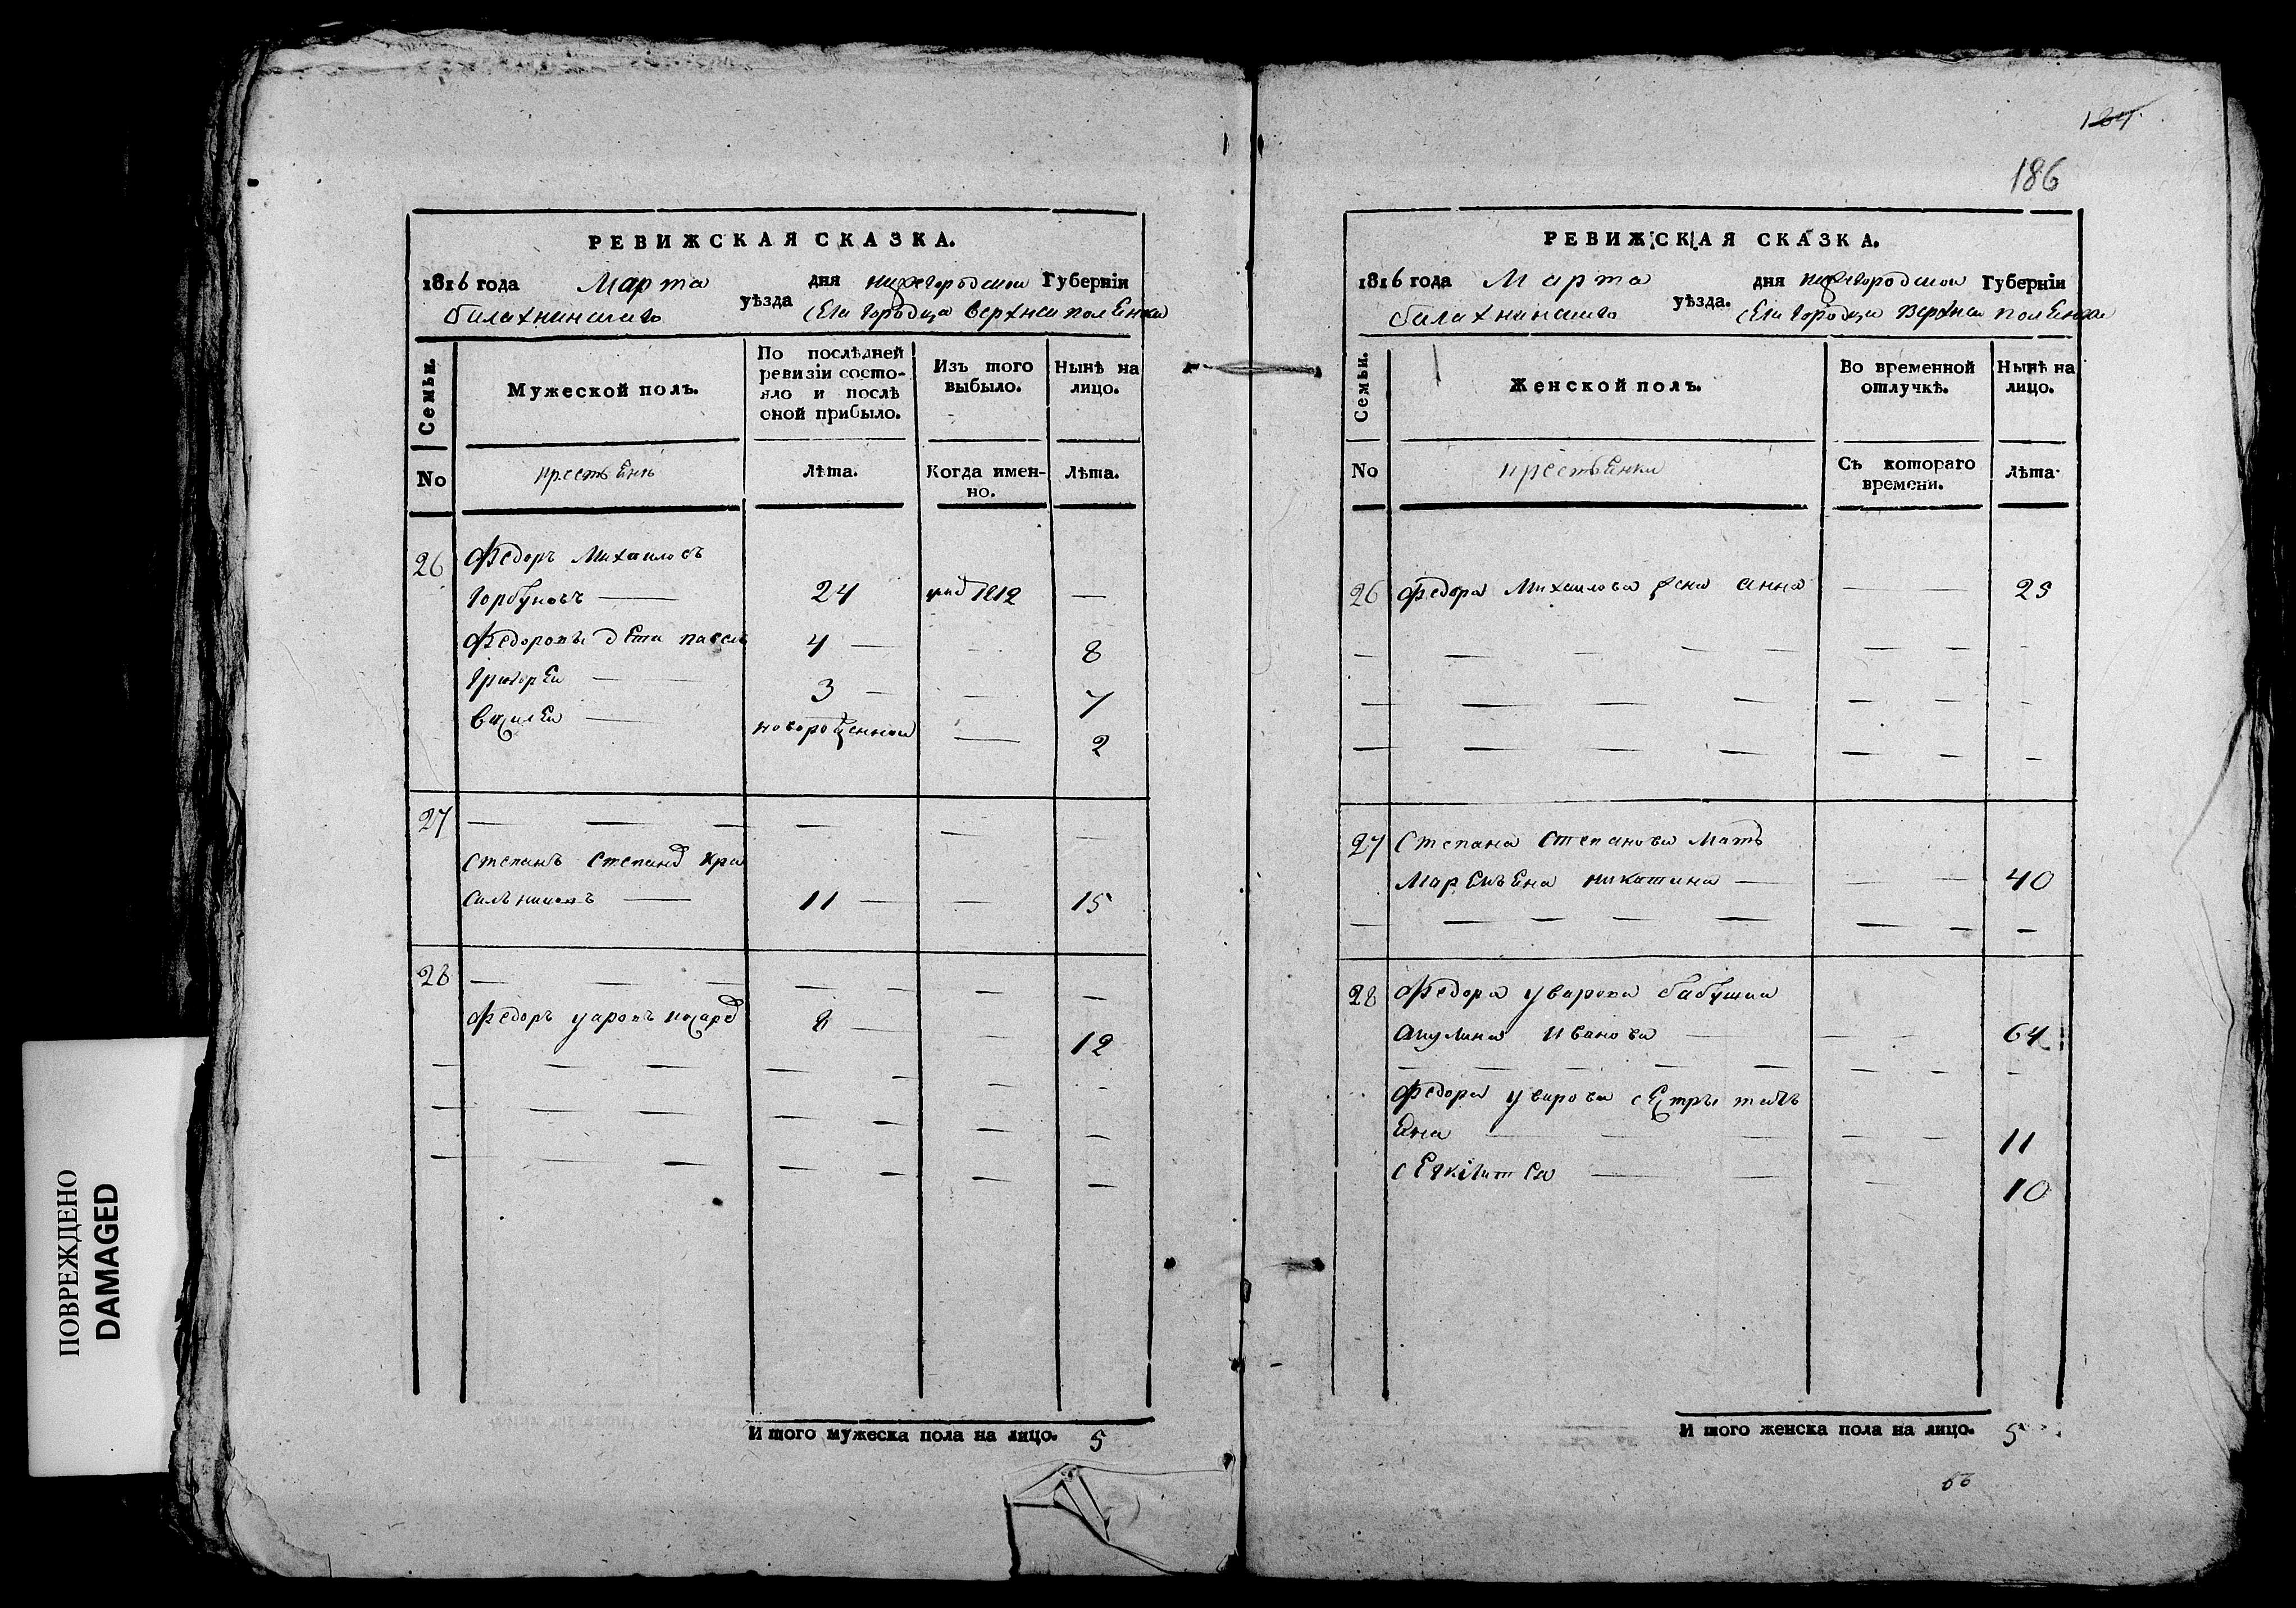 ПОВРЕЖДЕНО
DAMAGED
РЕВИЖСКАЯ СКАЗКА.
1816 года Марта дня нижегородской Губерніи
балахнинскаго уѣзда села городца верхней полѣнки
Семьи.
Мужеской полъ.
По послѣдней
ревизіи состо-
яло и послѣ
оной прибыло.
Изъ того
выбыло.
Нынѣ на
лицо.
No
крестьѣнъ
Лѣта.
Когда имен-
но.
Лѣта.
26 Федоръ Михаиловъ
Горбуновъ — 24 1812 —
Федоровы дѣти павелъ 4 — 8
Григорѣй — 3 — 7
Василѣй — новорожденной — 2
27
Степанъ Степанов Кра
сильниковъ — 11 — 15
28
Федоръ уаровъ 8 — 12
И того мужеска пола на лицо. 5
184
186
РЕВИЖСКАЯ СКАЗКА.
1816 года Марта дня нижегородской Губерніи
балахнинскаго уѣзда. села городца верхней полѣнки
Семьи.
Женской полъ.
Во временной
отлучкѣ.
Нынѣ на
лицо.
No
крестьѣнки
Съ котораго
времени.
Лѣта
26 Федора Михаилова жена анна — 25
27 Степана Степанова мать
Марѣмьѣна никитина — 40
28 Федора уварова бабушка
акулина Иванова — 64
Федора уварова сѣстры тать
ѣна — 11
10
И того женска пола на лицо. 5